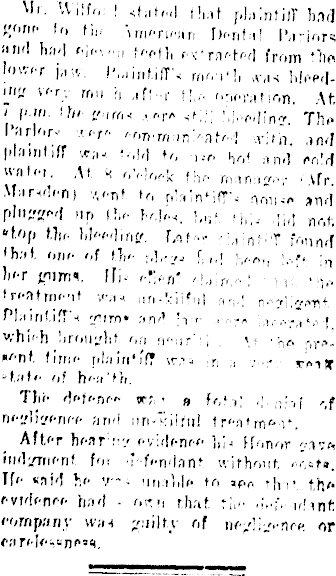 Mr. Wilford stated that plaintiff had
gone to the American Dental Parlors
and had eleven teeth extracted from the
lower jaw. Plaintiff's mouth was bleed-
ing very much after the operation. At
7 p.m. the gums were still bleeding. The
Parlors were communicated with, and
plaintiff was told to use hot and cold
water. At 8 o'clock the manager (Mr.
Marsden) went to plaintiff's house and
plugged up the holes, but this did not
stop the bleeding. Later plaintiff found
that one of the plugs had been left in
her gums. His client claimed that the
treatment was unskilful and negligent.
Plaintiff's gums and jaw were lacerated,
which brought on neuritis. At the pre-
sent time plaintiff was in a very weak
state of health.
The defence was a total denial of
negligence and unskilful treatment.
After hearing evidence his Honor gave
judgment for defendant without costs.
He said he was unable to see that the
evidence had shown that the defendant
company was guilty of negligence or
carelessness.